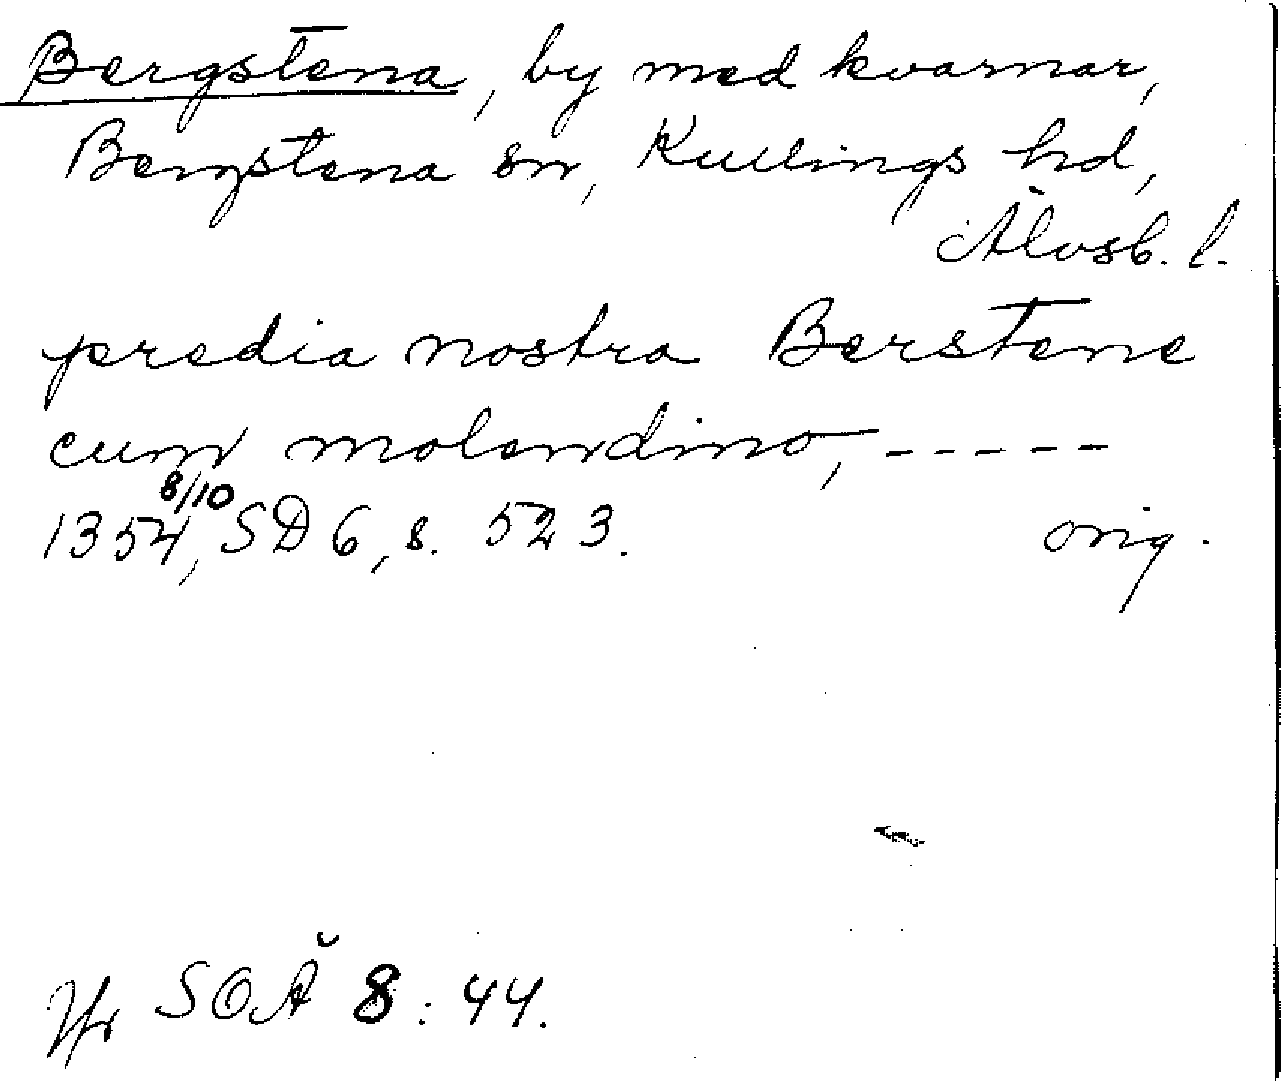 Bergstena, by med kvarnar,
Bergstena sn, Kullings hd,
Älvsb. l.
predia nostra Berstene
cum molendino, -----
1354 8/10, SD 6, s. 523. orig.
Jfr SOÄ 8 : 44.